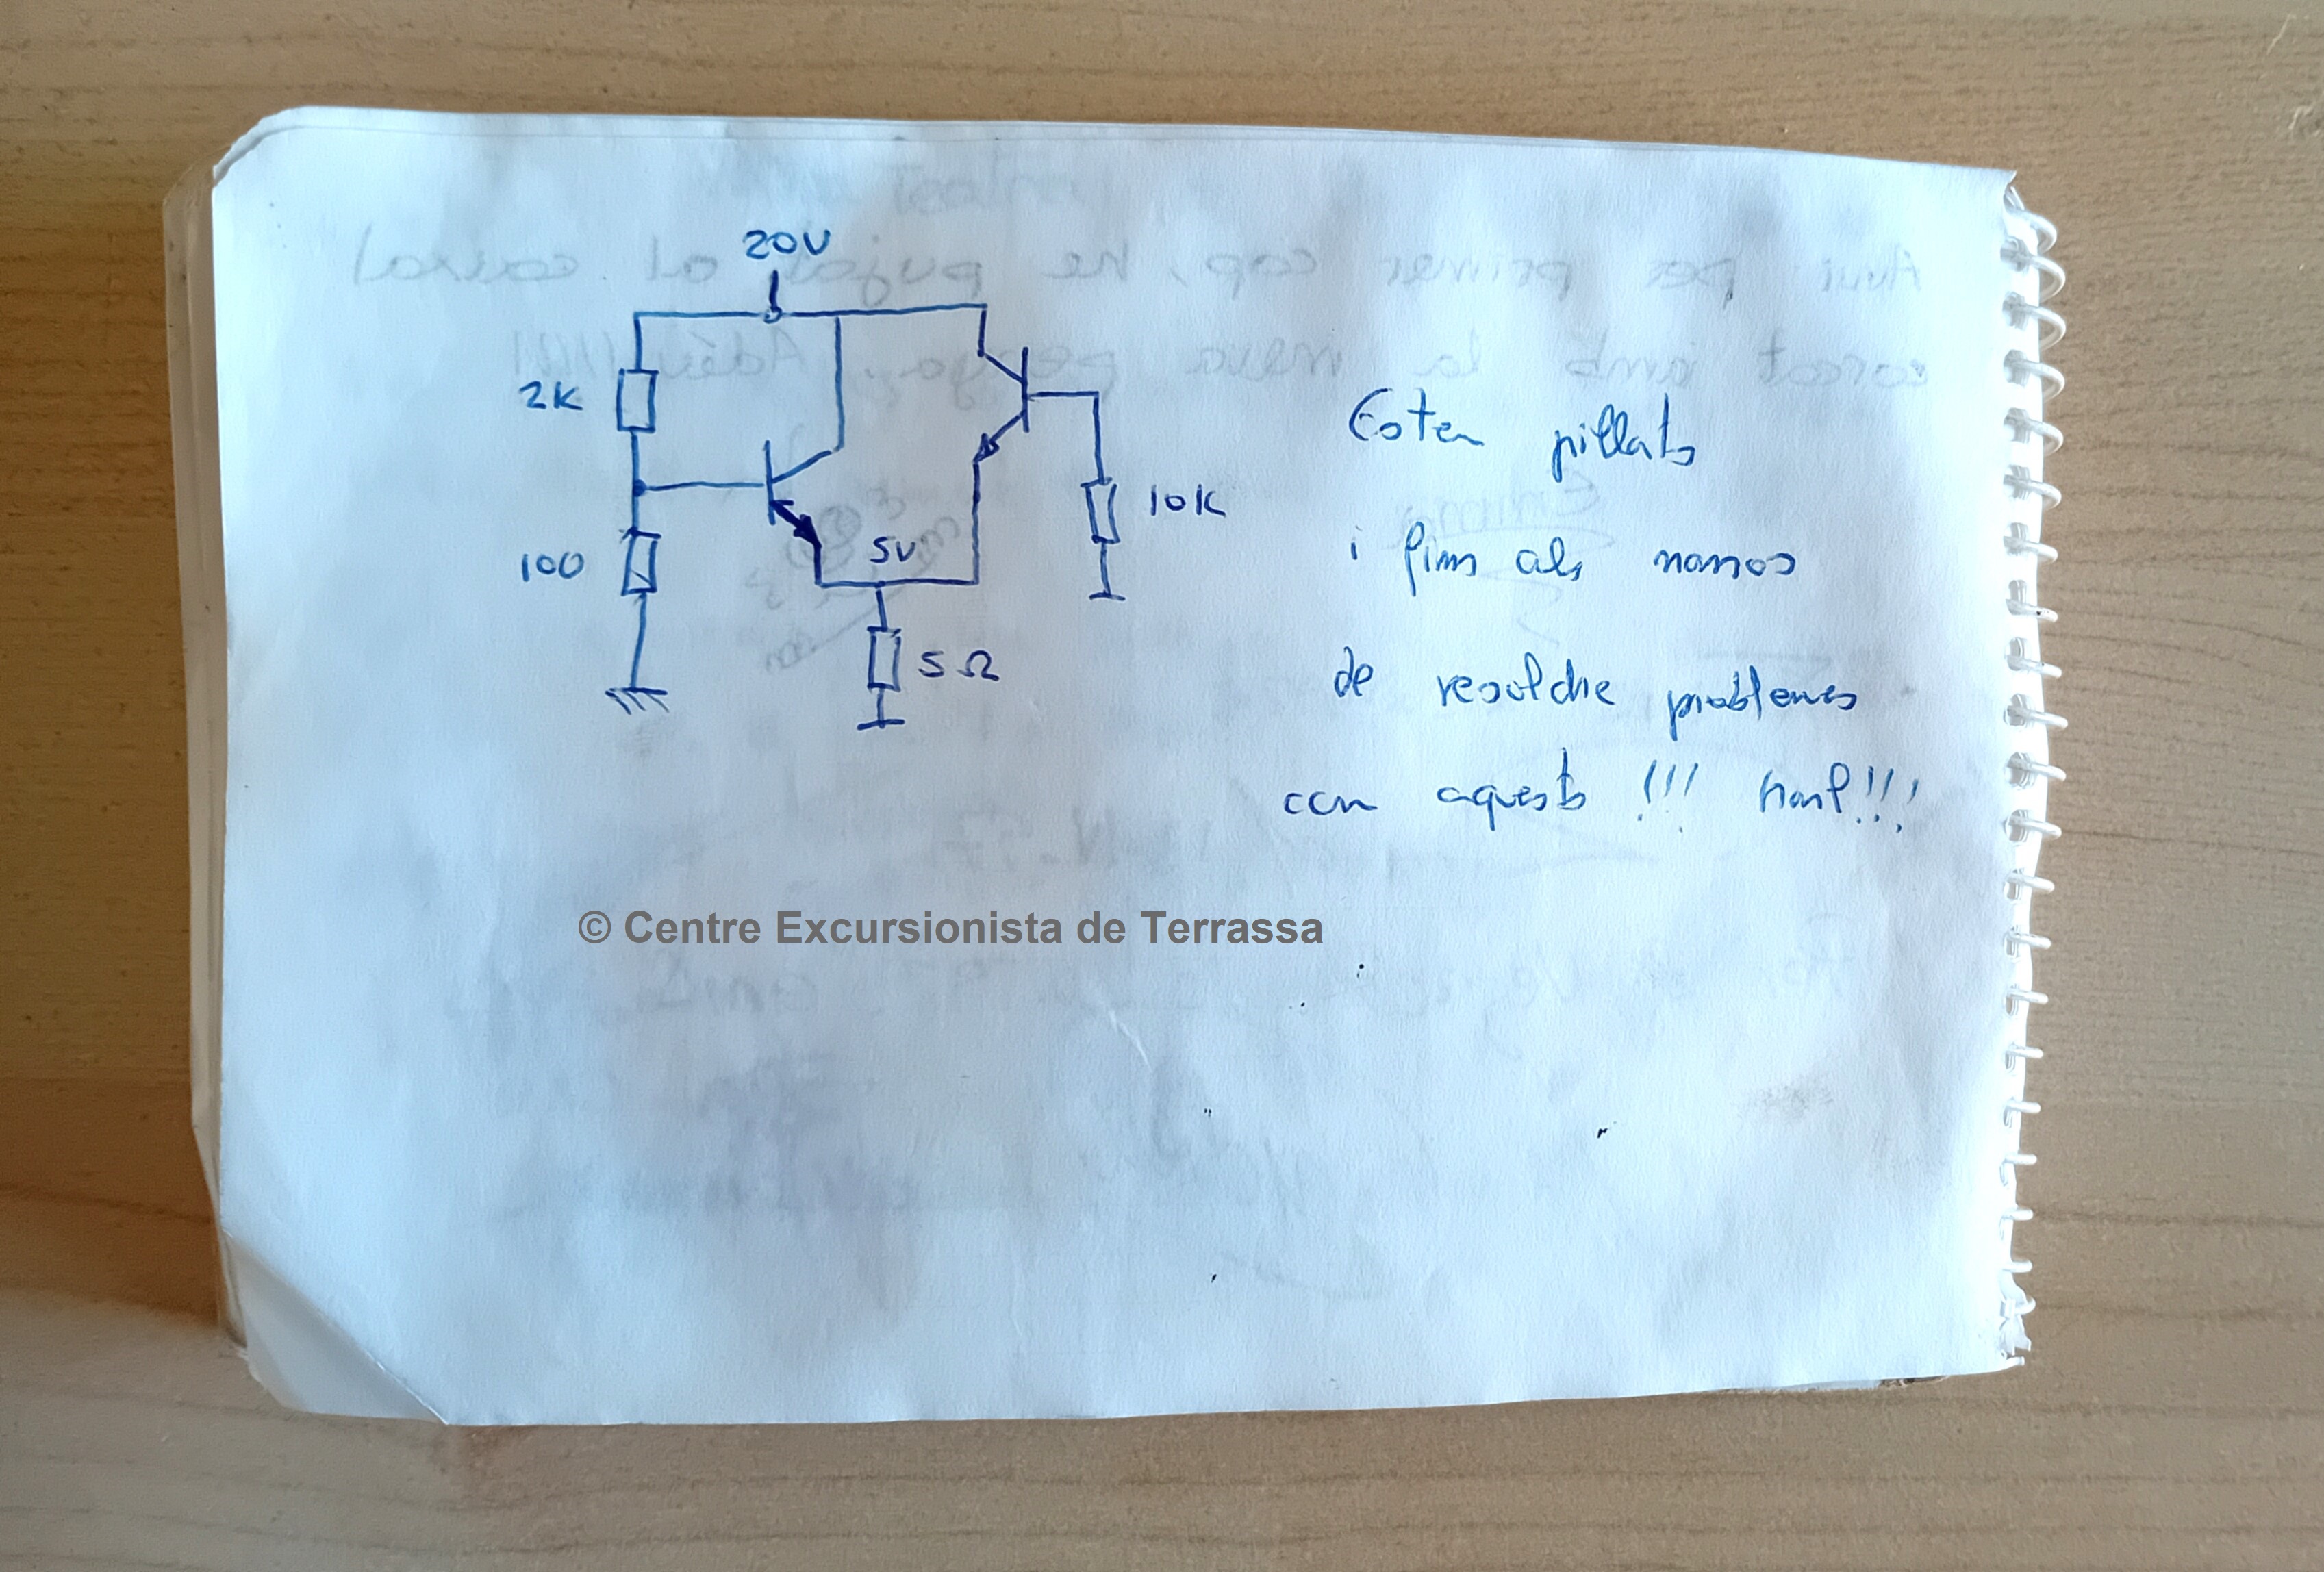 20V
2K
100
5V
5Ω
10K
Estem pillats
i fins als nassos
de resoldre problemes
com aquests !!! 
© Centre Excursionista de Terrassa